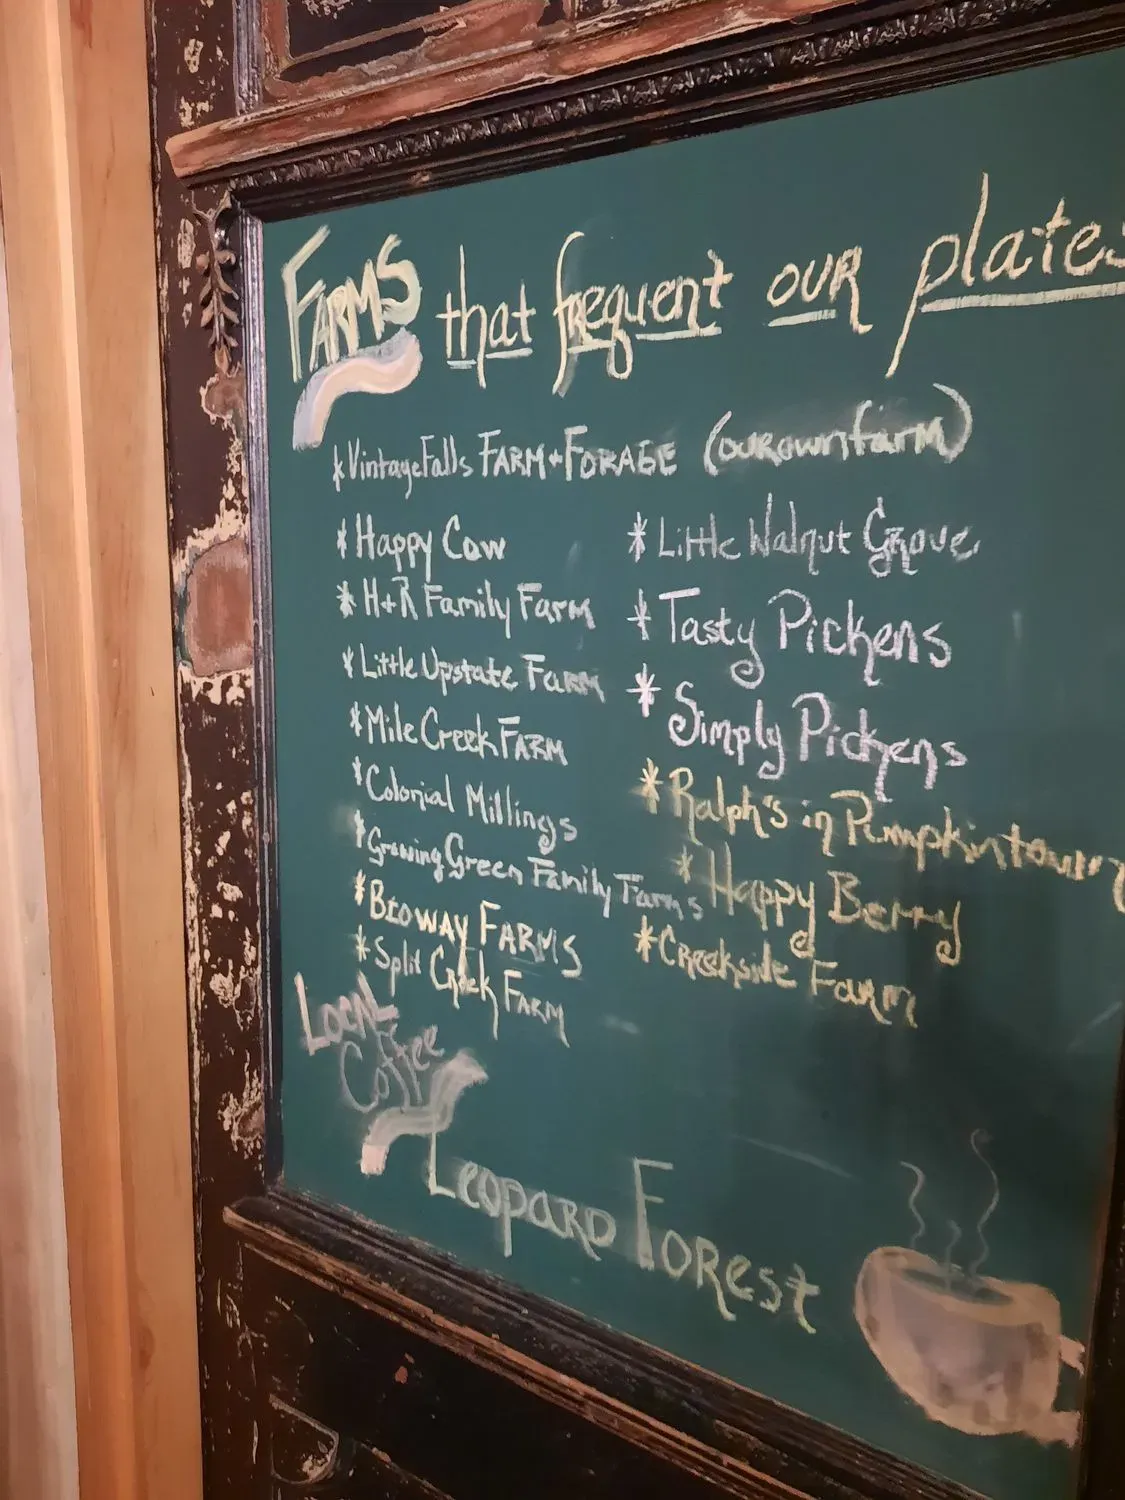 FARMS that frequent our plates
*Vintage Falls FARM+FORAGE (our own farm)
*Happy Cow
*H+R Family Farm
*Little Upstate Farm
*Mile Creek FARM
*Colonial Millings
*Growing Green Family Farms
*Bioway FARMS
*Split Creek FARM
*Little Walnut Grove
*Tasty Pickens
*Simply Pickens
*Ralph's in Pumpkintown
*Happy Berry
*Creekside Farm
Local
Coffee
Leopard Forest